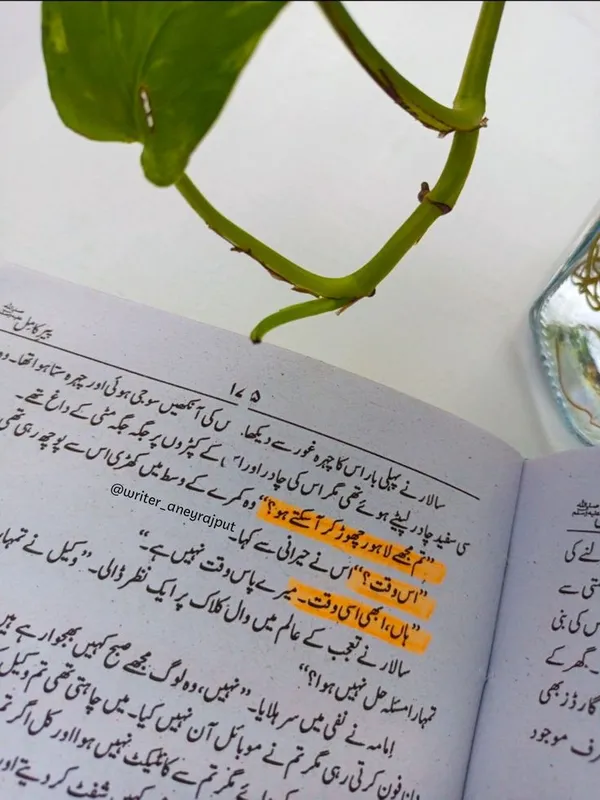 پیر کامل ﷺ
۱۷۵
سالار نے پہلی بار اس کا چہرہ غور سے دیکھا۔ اس کی آنکھیں سوجی ہوئی اور چہرہ ستا ہوا تھا۔ وہ
سی سفید چادر لپیٹے ہوئے تھی مگر اس کی چادر اور اس کے کپڑوں پر جگہ جگہ مٹی کے داغ تھے۔
"تم مجھے لاہور چھوڑ کر آ سکتے ہو؟" وہ کمرے کے وسط میں کھڑی اس سے پوچھ رہی تھی
"اس وقت؟" اس نے حیرانی سے کہا۔
"ہاں، ابھی اسی وقت۔ میرے پاس وقت نہیں ہے۔"
سالار نے تعجب کے عالم میں وال کلاک پر ایک نظر ڈالی۔ "وکیل نے تمہارا
تمہارا مسئلہ حل نہیں ہوا؟"
امامہ نے نفی میں سر ہلایا۔ "نہیں، وہ لوگ مجھے صبح کہیں بھجوا رہے ہیں
فون کرتی رہی مگر تم نے موبائل آن نہیں کیا۔ میں چاہتی تھی تم وکیل
مگر تم سے کانٹیکٹ نہیں ہوا اور کل اگر تم
کہیں شفٹ کر دیتے اور
@writer_aneyrajput
لنے کی
س کی بنی
۔ گھر کے
گارڈز بھی
رف موجود